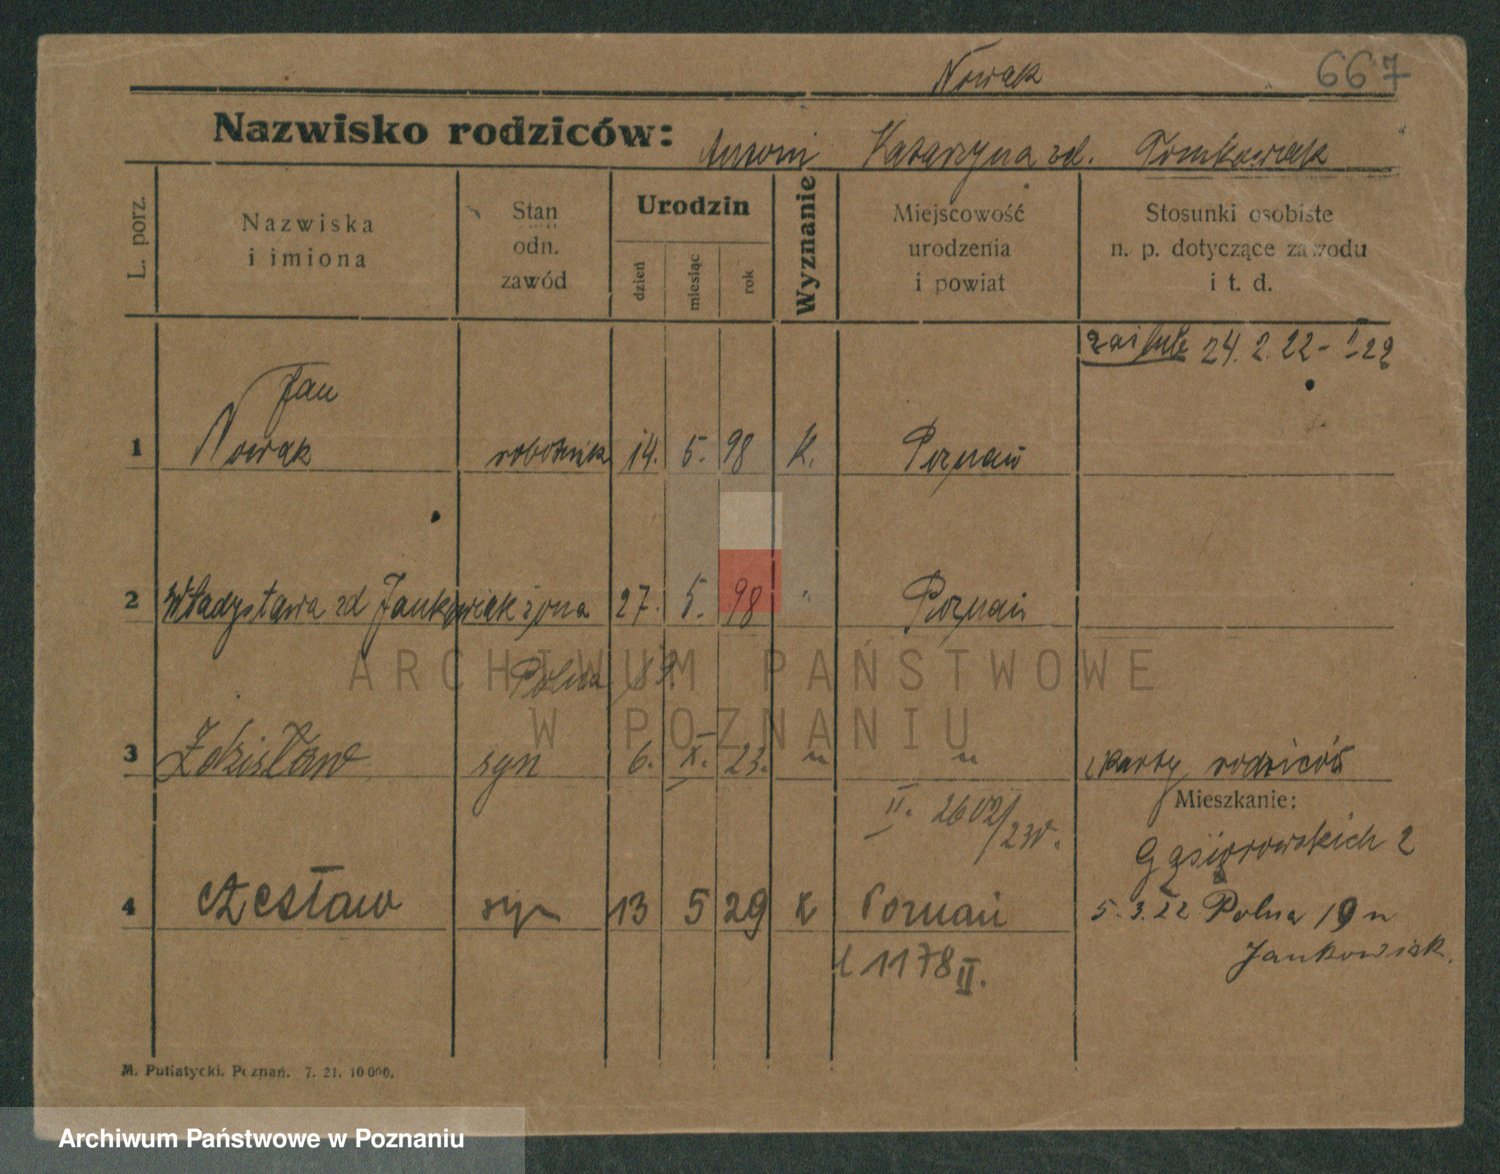 Nowak 667
Nazwisko rodziców: Antoni Katarzyna zd. Tomkowiak
L. porz.
Nazwiska
i imiona
Stan
odn.
zawód
Urodzin
dzień
miesiąc
rok
Wyznanie
Miejscowość
urodzenia
i powiat
Stosunki osobiste
n. p. dotyczące zawodu
i t. d.
24. 2. 22
Jan
1 Nowak robotnik 14. 5. 98 K. Poznań
2 Władysława zd Jankowiak żona 27. 5. 98 " Poznań
Polna 19.
3 Zdzisław syn 6. X. 23. " " karty rodziców
II. 2602/23
Mieszkanie:
Gąsiorowskich 2
4 Czesław syn 13 5 29 K Poznań 5. 3. 22 Polna 19 n
Jankowiak.
1178 II.
M. Putiatycki. Poznań. 7. 21. 10 000.
ARCHIWUM PAŃSTWOWE
W POZNANIU
Archiwum Państwowe w Poznaniu